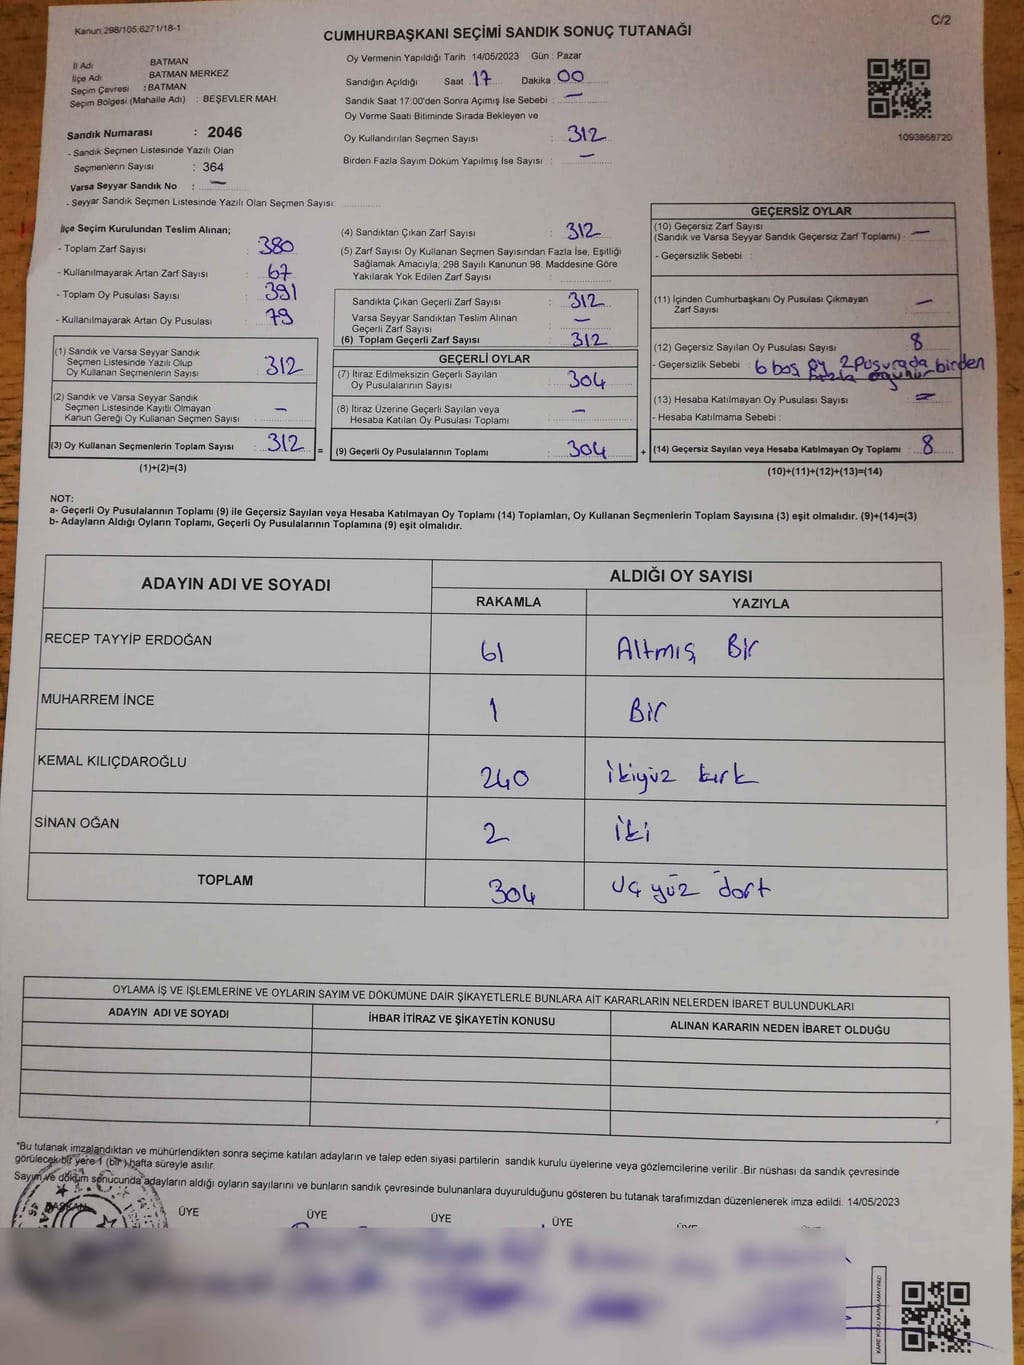 Kanun 298/105;6271/18-1
C/2
CUMHURBAŞKANI SEÇİMİ SANDIK SONUÇ TUTANAĞI
İl Adı BATMAN
İlçe Adı BATMAN MERKEZ
Seçim Çevresi : BATMAN
Seçim Bölgesi (Mahalle Adı) : BEŞEVLER MAH.
Oy Vermenin Yapıldığı Tarih : 14/05/2023 Gün : Pazar
Sandığın Açıldığı Saat : 17 Dakika : 00
Sandık Saat 17:00'den Sonra Açımış İse Sebebi : —
Oy Verme Saati Bitiminde Sırada Bekleyen ve
Oy Kullandırılan Seçmen Sayısı : 312
Birden Fazla Sayım Döküm Yapılmış İse Sayısı : —
1093858720
Sandık Numarası : 2046
- Sandık Seçmen Listesinde Yazılı Olan
Seçmenlerin Sayısı : 364
Varsa Seyyar Sandık No : —
- Seyyar Sandık Seçmen Listesinde Yazılı Olan Seçmen Sayısı:
İlçe Seçim Kurulundan Teslim Alınan;
- Toplam Zarf Sayısı : 380
- Kullanılmayarak Artan Zarf Sayısı : 67
- Toplam Oy Pusulası Sayısı : 391
- Kullanılmayarak Artan Oy Pusulası : 79
(1) Sandık ve Varsa Seyyar Sandık
Seçmen Listesinde Yazılı Olup
Oy Kullanan Seçmenlerin Sayısı : 312
(2) Sandık ve Varsa Seyyar Sandık
Seçmen Listesinde Kayıtlı Olmayan
Kanun Gereği Oy Kullanan Seçmen Sayısı : —
(3) Oy Kullanan Seçmenlerin Toplam Sayısı : 312
(1)+(2)=(3)
(4) Sandıktan Çıkan Zarf Sayısı : 312
(5) Zarf Sayısı Oy Kullanan Seçmen Sayısından Fazla İse, Eşitliği
Sağlamak Amacıyla; 298 Sayılı Kanunun 98. Maddesine Göre
Yakılarak Yok Edilen Zarf Sayısı :
Sandıkta Çıkan Geçerli Zarf Sayısı : 312
Varsa Seyyar Sandıktan Teslim Alınan
Geçerli Zarf Sayısı : —
(6) Toplam Geçerli Zarf Sayısı : 312
GEÇERLİ OYLAR
(7) İtiraz Edilmeksizin Geçerli Sayılan
Oy Pusulalarının Sayısı : 304
(8) İtiraz Üzerine Geçerli Sayılan veya
Hesaba Katılan Oy Pusulası Toplamı : —
= (9) Geçerli Oy Pusulalarının Toplamı : 304 +
GEÇERSİZ OYLAR
(10) Geçersiz Zarf Sayısı
(Sandık ve Varsa Seyyar Sandık Geçersiz Zarf Toplamı) : —
- Geçersizlik Sebebi :
(11) İçinden Cumhurbaşkanı Oy Pusulası Çıkmayan
Zarf Sayısı : —
(12) Geçersiz Sayılan Oy Pusulası Sayısı : 8
- Geçersizlik Sebebi : 6 boş oy 2 Pusurada birden
fazla
(13) Hesaba Katılmayan Oy Pusulası Sayısı : —
- Hesaba Katılmama Sebebi :
(14) Geçersiz Sayılan veya Hesaba Katılmayan Oy Toplamı : 8
(10)+(11)+(12)+(13)=(14)
NOT:
a- Geçerli Oy Pusulalarının Toplamı (9) ile Geçersiz Sayılan veya Hesaba Katılmayan Oy Toplamı (14) Toplamları, Oy Kullanan Seçmenlerin Toplam Sayısına (3) eşit olmalıdır. (9)+(14)=(3)
b- Adayların Aldığı Oyların Toplamı, Geçerli Oy Pusulalarının Toplamına (9) eşit olmalıdır.
ADAYIN ADI VE SOYADI
ALDIĞI OY SAYISI
RAKAMLA YAZIYLA
RECEP TAYYİP ERDOĞAN 61 Altmış Bir
MUHARREM İNCE 1 Bir
KEMAL KILIÇDAROĞLU 240 ikiyüz kırk
SİNAN OĞAN 2 iki
TOPLAM 304 üç yüz dört
OYLAMA İŞ VE İŞLEMLERİNE VE OYLARIN SAYIM VE DÖKÜMÜNE DAİR ŞİKAYETLERLE BUNLARA AİT KARARLARIN NELERDEN İBARET BULUNDUKLARI
ADAYIN ADI VE SOYADI İHBAR İTİRAZ VE ŞİKAYETİN KONUSU ALINAN KARARIN NEDEN İBARET OLDUĞU
*Bu tutanak imzalandıktan ve mühürlendikten sonra seçime katılan adayların ve talep eden siyasi partilerin sandık kurulu üyelerine veya gözlemcilerine verilir .Bir nüshası da sandık çevresinde
görülecek bir yere 1 (bir ) hafta süreyle asılır.
Sayım ve döküm sonucunda adayların aldığı oyların sayılarını ve bunların sandık çevresinde bulunanlara duyurulduğunu gösteren bu tutanak tarafımızdan düzenlenerek imza edildi. 14/05/2023
BAŞKAN ÜYE ÜYE ÜYE ÜYE ÜYE
KARE KODU KARALAMAYINIZ!